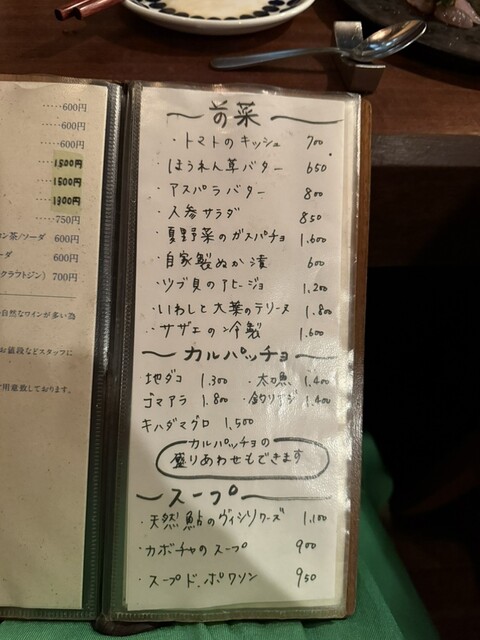 ‥‥‥600円
‥‥‥600円
‥‥‥600円
‥‥‥1500円
‥‥‥1500円
‥‥‥1300円
‥‥‥750円
ン茶/ソーダ 600円
ーダ 600円
クラフトジン) 700円
自然なワインが多い為
お値段などスタッフに
用意致しております。
前菜
・トマトのキッシュ 700
・ほうれん草バター 650
・アスパラバター 800
・人参サラダ 850
・夏野菜のガスパチョ 1.600
・自家製ぬか漬 600
・ツブ貝のアヒージョ 1.200
・いわしと大葉のテリーヌ 1.800
・サザエの冷製 1.600
カルパッチョ
地ダコ 1.300 ・太刀魚 1.400
ゴマアラ 1.800 ・釣りアジ 1.400
キハダマグロ 1,500
カルパッチョの
盛りあわせもできます
スープ
・天然鮎のヴィシソワーズ 1,100
・カボチャのスープ 900
・スープ ド.ポワソン 950